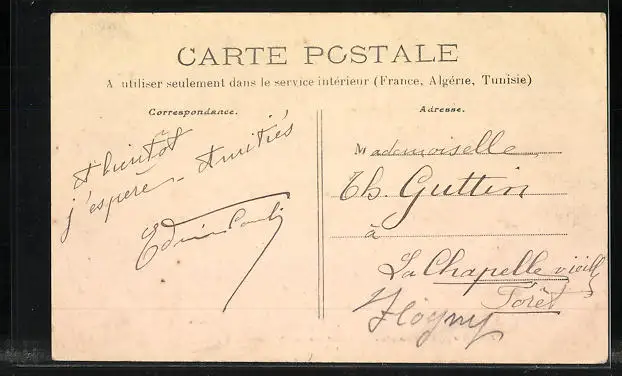 CARTE POSTALE
A utiliser seulement dans le service intérieur (France, Algérie, Tunisie)
Correspondance.
A bientôt
j'espère - Amitiés
Adresse.
Mademoiselle
Th. Guttin
à
La Chapelle vieille
Forêt
Flogny